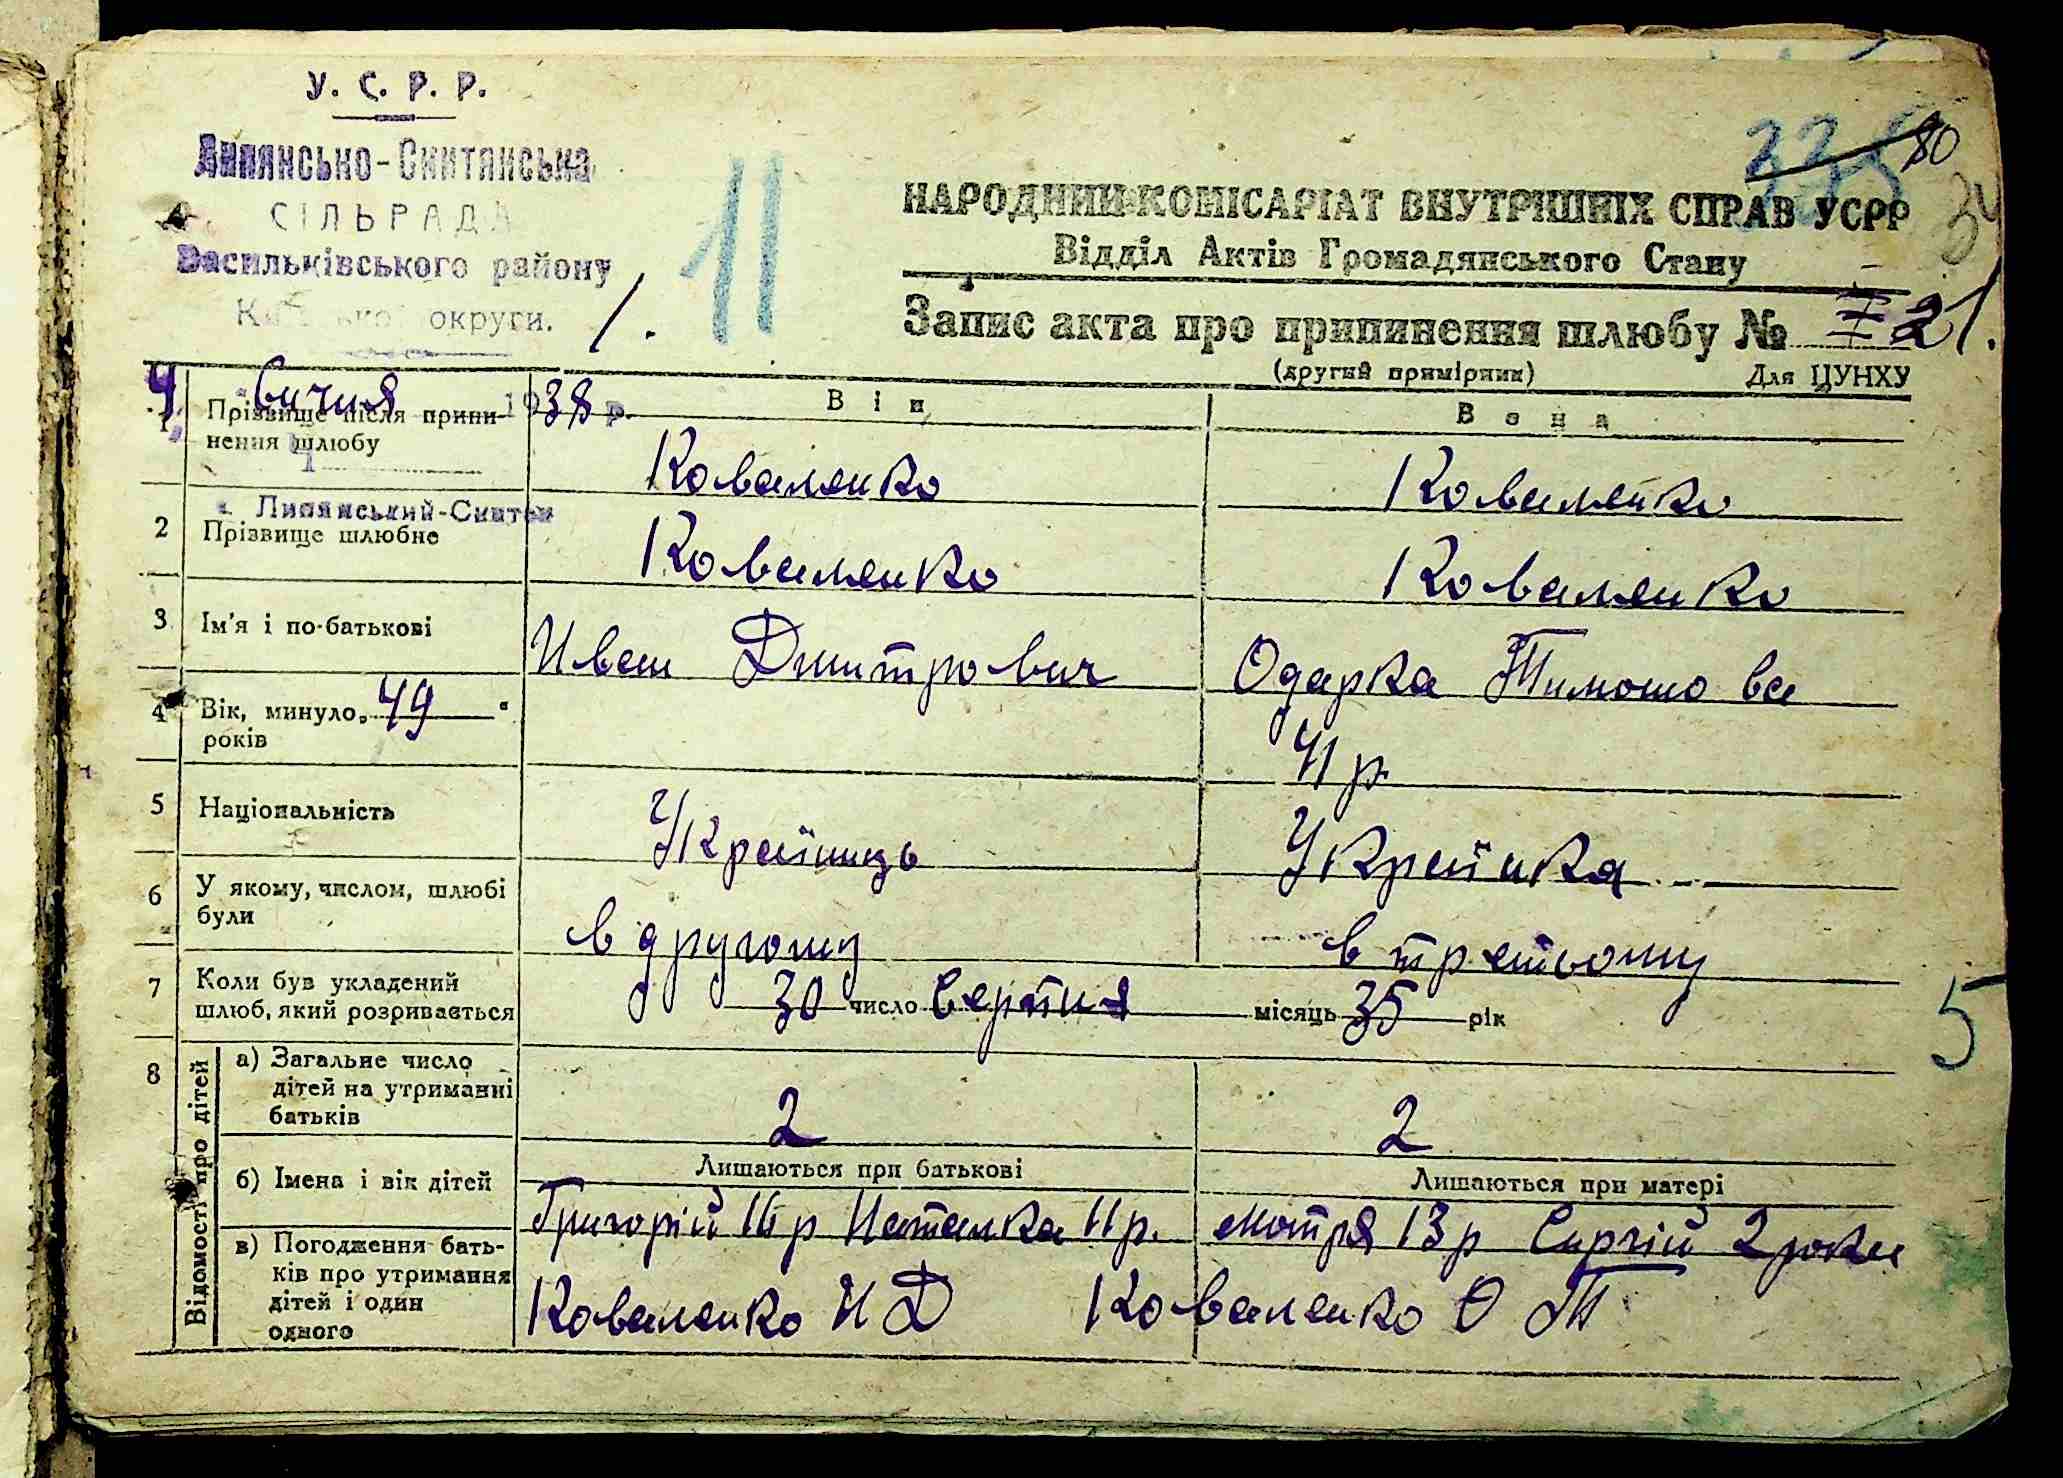 У. С. Р. Р.
Липянсько-Скитянська
СІЛЬРАДА
Васильківського району
округи.
1.
11
80
34
НАРОДНИЙ КОМІСАРІАТ ВНУТРІШНІХ СПРАВ УСРР
Відділ Актів Громадянського Стану
Запис акта про припинення шлюбу № 21.
(другий примірник) Для ЦУНХУ
4 Січня 1938 р.
Він Вона
1 Прізвище після припинення шлюбу Коваленко Коваленко
с. Липянський-Скиток
2 Прізвище шлюбне Коваленко Коваленко
3 Ім'я і по-батькові Иван Дмитрович Одарка Тимошова
4 Вік, минуло 49 років 41 р.
5 Національність Українець Українка
6 У якому, числом, шлюбі були в другому в третьому
7 Коли був укладений шлюб, який розривається 30 число Серпня місяць 35 рік
8 Відомості про дітей
а) Загальне число дітей на утриманні батьків 2 2
Лишаються при батькові Лишаються при матері
б) Імена і вік дітей Григорій 16 р Наталка 11 р. Мотря 13 р Сиргій 2 роки
в) Погодження батьків про утримання дітей і один одного Коваленко И Д Коваленко О Т
5